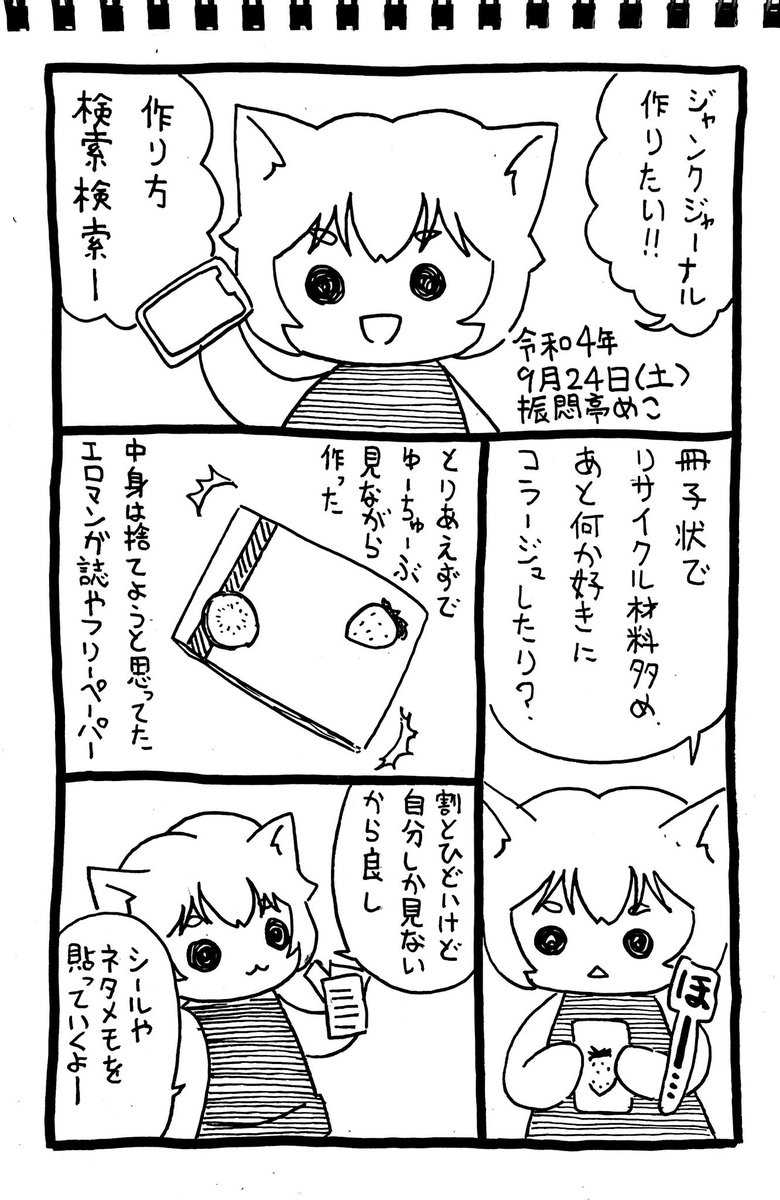 ジャンクジャーナル
作りたい!!
作り方
検索検索ー
令和4年
9月24日(土)
振悶亭めこ
冊子状で
リサイクル材料多め、
あと何か好きに
コラージュしたり?
ほーー…
とりあえずで
ゆーちゅーぶ
見ながら
作った
中身は捨てようと思ってた
エロマンガ誌やフリーペーパー
割とひどいけど
自分しか見ない
から良し
シールや
ネタメモを
貼っていくよー